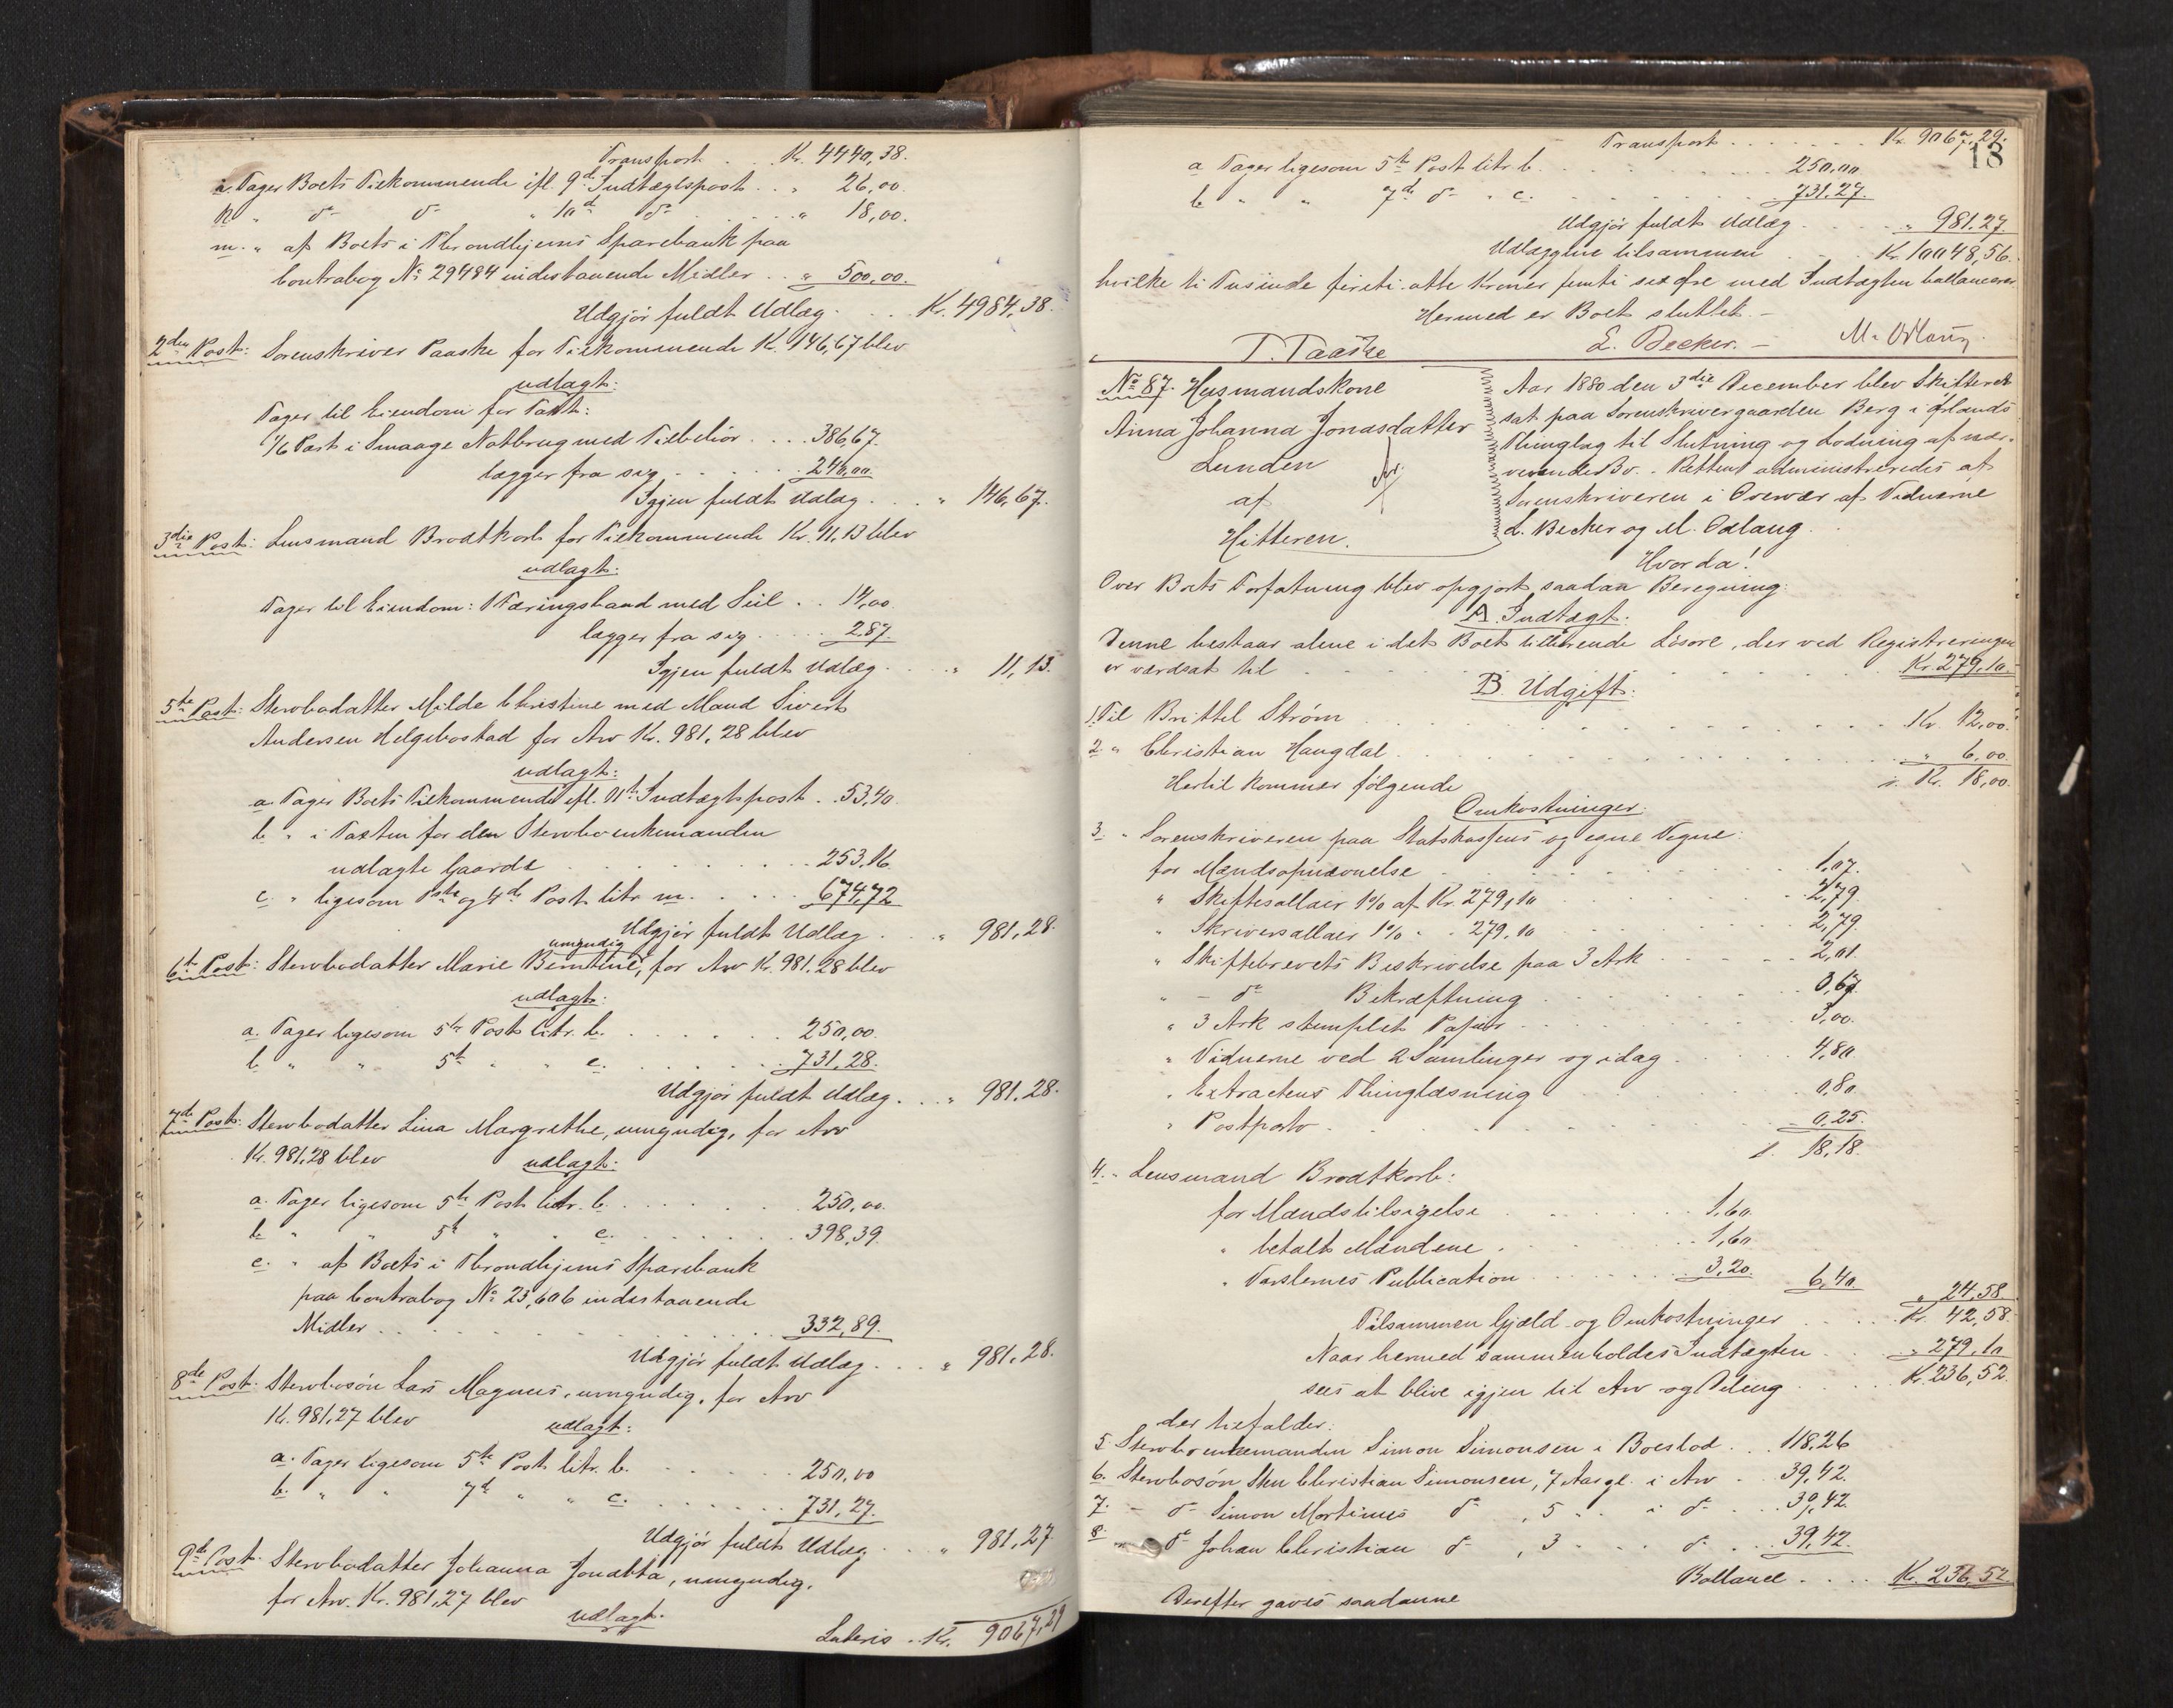 Transport . . Kr. 4440,38.
a. Tager Boets Tilkommende ifl. 9de Indtægtspost . . " 26,00.
" do do " 10de do . . . . " 18,00.
m. " af Boets i Throndhjems Sparebank paa
Contrabog No 29484 indestaaende Midler . . " 500,00.
Udgjør fuldt Udlæg . . . Kr. 4984,38.
2den Post: Sorenskriver Paaske for Tilkommende Kr. 146,67 blev
udlagt:
Tager til Eiendom for Taxt:
1/6 Part i Smaage Notbrug med Tilbehør . . . 386,67.
lægger fra sig . . . . . . 240,00.
Igjen fuldt Udlæg . . . " 146,67.
3die Post: Lensmand Brodtkorb for Tilkommende Kr. 11,13 blev
udlagt:
Tager til Eiendom: 1 Færingsbaad med Seil . . 14,00.
lægger fra sig . . . . . 2,87.
Igjen fuldt Udlæg . . . " 11,13.
5te Post: Stervbodatter Milde Christine med Mand Sivert
Andersen Helgebostad for Arv Kr. 981,28 blev
udlagt:
a. Tager Boets Tilkommende ifl. 11te Indtægtspost . . 53,40.
b. " i Taxten for den Stervboenkemanden
udlagte Gaard . . . . . 253,16
c. " ligesom 1ste og 4de Post litr. m. . . . . 674,72
Udgjør fuldt Udlæg . . . " 981,28.
umyndig
6te Post: Stervbodatter Marie Berntine, for Arv Kr. 981,28 blev
udlagt:
a. Tager ligesom 5te Post litr. b. . . . . . 250,00.
b " " 5te " " c. . . . . . 731,28.
Udgjør fuldt Udlæg . . . " 981,28.
7de Post: Stervbodatter Lina Margrethe, umyndig, for Arv
Kr. 981,28 blev udlagt:
a. Tager ligesom 5te Post litr. b. . . . . . 250,00.
b " " 5te " " c. . . . . . 398,39.
c. " af Boets i Throndhjems Sparebank
paa Contrabog No 23,606 indestaaende
Midler . . . . . . . 332,89.
Udgjør fuldt Udlæg . . . " 981,28.
8de Post: Stervbosøn Lars Magnus, umyndig, for Arv
Kr. 981,27 blev udlagt:
a. Tager ligesom 5te Post litr. b. . . . . . 250,00
b. " " 7de " " c. . . . . . 731,27.
Udgjør fuldt Udlæg . . . " 981,27.
9de Post: Stervbodatter Johanna Jonetta, umyndig,
for Arv. Kr. 981,27 blev
udlagt.
Lateris . . Kr. 9067,29
18
Transport . . . . . . Kr. 9067,29.
a Tager ligesom 5te Post litr. b. . . . . . 250,00.
b " " 7de do " c. . . . . . 731,27.
Udgjør fuldt Udlæg . . . . " 981,27.
Udlæggene tilsammen . . Kr. 10048,56.
hvilke ti Tusinde firti-otte Kroner femti sex Øre med Indtægten ballancerer.
Hermed er Boet sluttet. -
T. Paaske L. Becker. - M. Odlaug.
No 87. Husmandskone
Anna Johanna Jonasdatter
Lunden
af
Hitteren.
Aar 1880 den 3die December blev Skifteret
sat paa Sorenskrivergaarden Berg i Ørlands
Thinglag til Slutning og Lodning af nær-
værende Bo. - Retten administreredes af
Sorenskriveren i Overvær af Vidnerne
L. Becker og M. Odlaug.
Hvorda!
Over Boets Forfatning blev opgjort saadan Beregning:
A. Indtægt:
Denne bestaar alene i det Boet tilhørende Løsøre, der ved Registreringen
er værdsat til . . . . . . . Kr. 279,10.
B. Udgift:
1. Til Brittel Strøm . . . . . . . Kr. 12,00.
2. " Christian Haugdal . . . . . . . " 6,00.
Hertil kommer følgende s. Kr. 18,00.
Omkostninger:
3. " Sorenskriveren paa Statskassens og egne Vegne:
for Mændsopnævnelse . . . . . 1,07.
" Skiftesallair 1% af Kr. 279,10 . . . . . 2,79
" Skriversallair 1% " " 279,10 . . . . . 2,79.
" Skiftebrevets Beskrivelse paa 3 Ark . . . . . 2,01.
" - do Bekræftning . . . . . 0,67.
" 3 Ark stemplet Papir . . . . . 3,00.
" Vidnerne ved 2 Samlinger og idag . . . . 4,80
" Extractens Thinglæsning . . . . 0,80.
" Postporto . . . . . . 0,25.
s. 18,18.
4. " Lensmand Brodtkorb:
for Mændstilsigelse . . . . . 1,60.
" betalt Mændene . . . . . 1,60.
" Varslernes Publication . . . . . 3,20. 6,40 " 24,58.
Tilsammen Gjæld og Omkostninger . . . Kr. 42,58.
Naar hermed sammenholdes Indtægten . . . " 279,10
sees at blive igjen til Arv og Deling . . . Kr. 236,52.
der tilfalder:
5. Stervboenkemanden Simon Simonsen i Boeslod . . 118,26
6. Stervbosøn Sten Christian Simonsen, 7 Aar gl. i Arv . . 39,42.
7. - do Simon Martinus do , 5 " " i do . . 39,42.
8. " do Johan Christian do , 3 " " " do . . 39,42.
Ballance . . . . Kr. 236,52
Derefter gaves saadanne